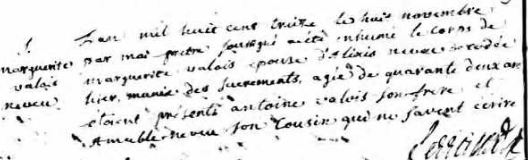 S.
marguerite
valais
neveu
L'an mil huit cens treize le huit novembre
par moi pretre soussigné a été inhumé le corps de
marguerite valais epouse d'Alixis neveu decedée
hier, munie des sacrements, agée de quarante deux an
etoient présents antoine valois son frere et
Amable neveu son Cousin qui ne savent ecrire